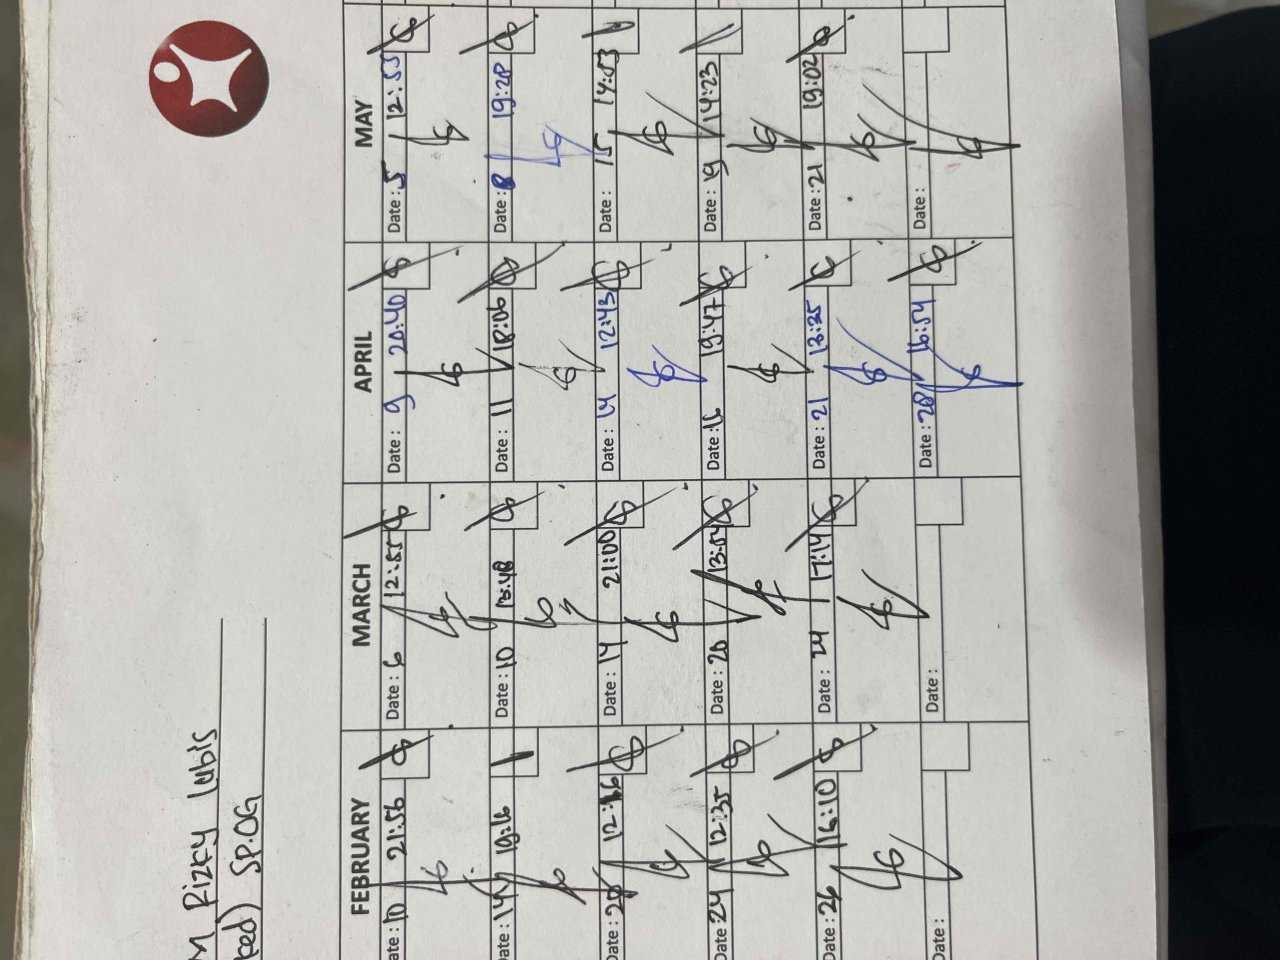 M Rizky lubis
ked) SP.OG
FEBRUARY MARCH APRIL MAY
ate: 10 21:56 Date: 6 12:55 Date: 9 20:40 Date: 5 12:55
ate: 14 19:16 Date: 10 13:48 Date: 11 18:06 Date: 8 19:28
ate: 20 12:16 Date: 14 21:00 Date: 14 12:43 Date: 15 14:53
Date: 24 12:35 Date: 20 13:54 Date: 16 19:47 Date: 19 14:23
Date: 26 16:10 Date: 24 17:14 Date: 21 13:25 Date: 21 19:02
Date: Date: Date: 28 16:54 Date: